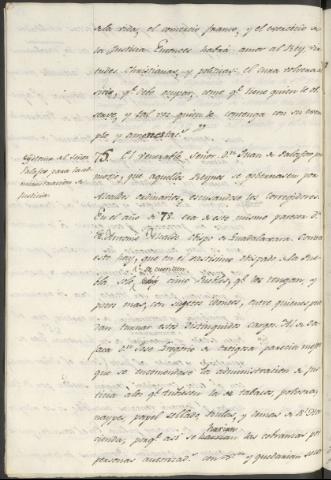 de la vida, el comercio franco, y el exercicio de
la Justicia. Entonces habrá amor al Rey, vir-
tudes Christianas, y politicas: el Cura volverá
sitio, qe debe ocupar, como qe tiene quien le ob-
serve, y tal vez quien le contenga con su exem-
plo y
Sistema del Señor
Palafox para la ad-
ministracion de
Justicia
75. El Venerable Señor Dn Juan de Palafox, pro-
movió, que aquellos Reynos se gobernasen por
Alcaldes ordinarios, escusandose los corregidores.
En el año de 78 era de este mismo parecer Dn
Fr Antonio Alcalde Obispo de Guadalaxara. Contra
esto hay, que en el vastisimo Obispado de la Pue-
bla solo se cuentan cinco Pueblos, qe los tengan, y
pocos mas, con sugetos idoneos, entre quienes pue-
dan turnar estos distinguidos cargos. Al de Oa-
xaca Dn Jose Gregorio de Ortigoza parecia mejor
que se encomendase la administracion de Jus-
ticia a los qe tubiesen la de tabacos, polvora,
naypes papel sellado bulas, y ramos de Rl Ha-
cienda, porqe asi se harian las cobranzas por
personas autorizads con Rl y quedarian